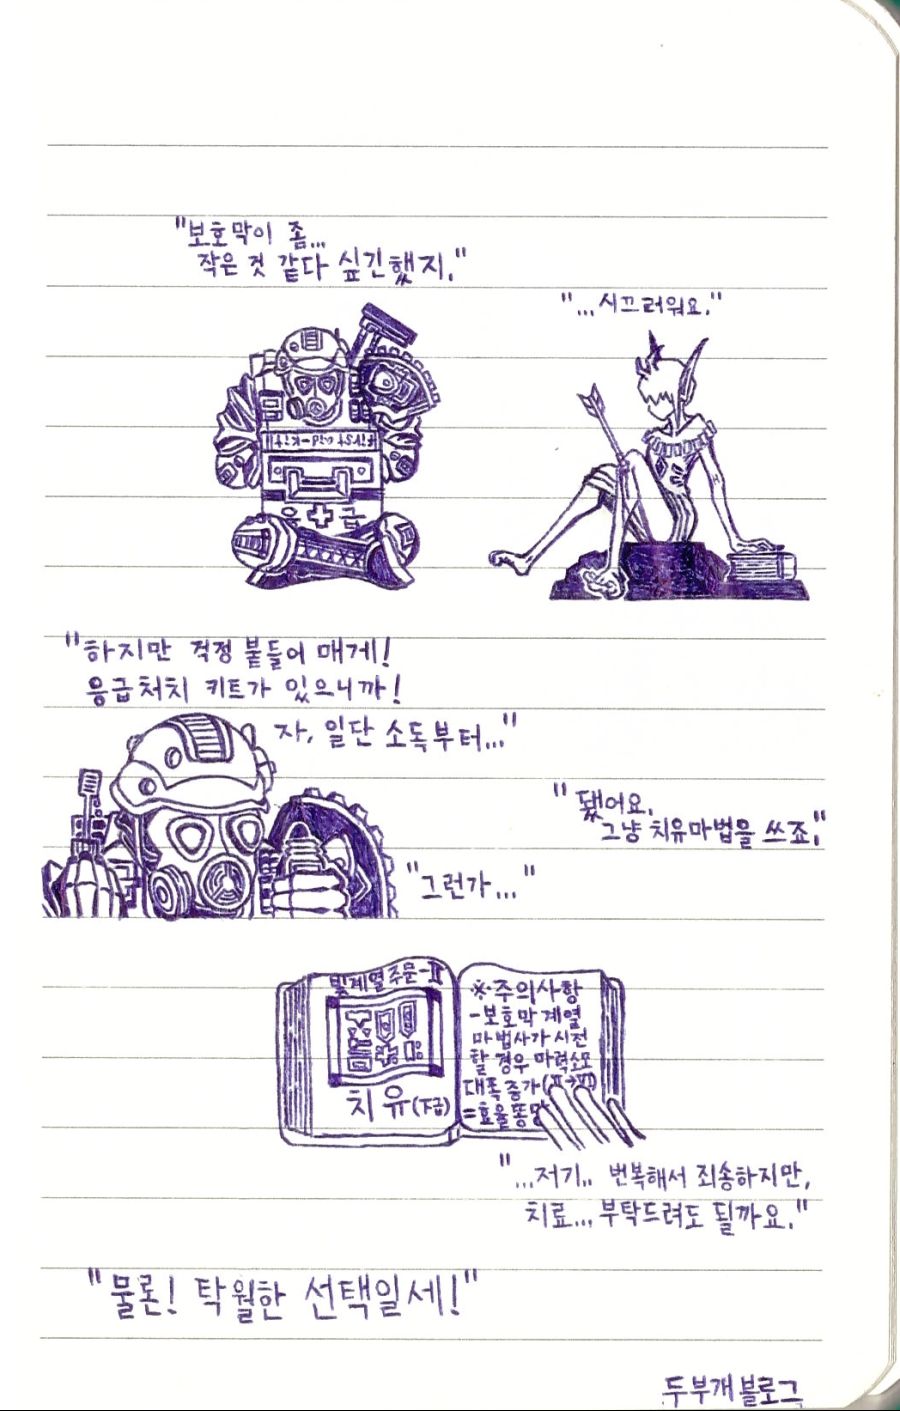 "보호막이 좀...
작은 것 같다 싶긴했지."
"...시끄러워요."
first aid-kit
응 급
"하지만 걱정 붙들어 매게!
응급처치 키트가 있으니까!
자, 일단 소독부터..."
"됐어요.
그냥 치유마법을 쓰죠."
"그런가..."
빛계열주문-II
치유(下급)
※주의사항
-보호막 계열
마법사가 시전
할 경우 마력소모
대폭 증가(II→VI)
=효율똥망
"...저기.. 번복해서 죄송하지만,
치료... 부탁드려도 될까요."
"물론! 탁월한 선택일세!"
두부개블로그